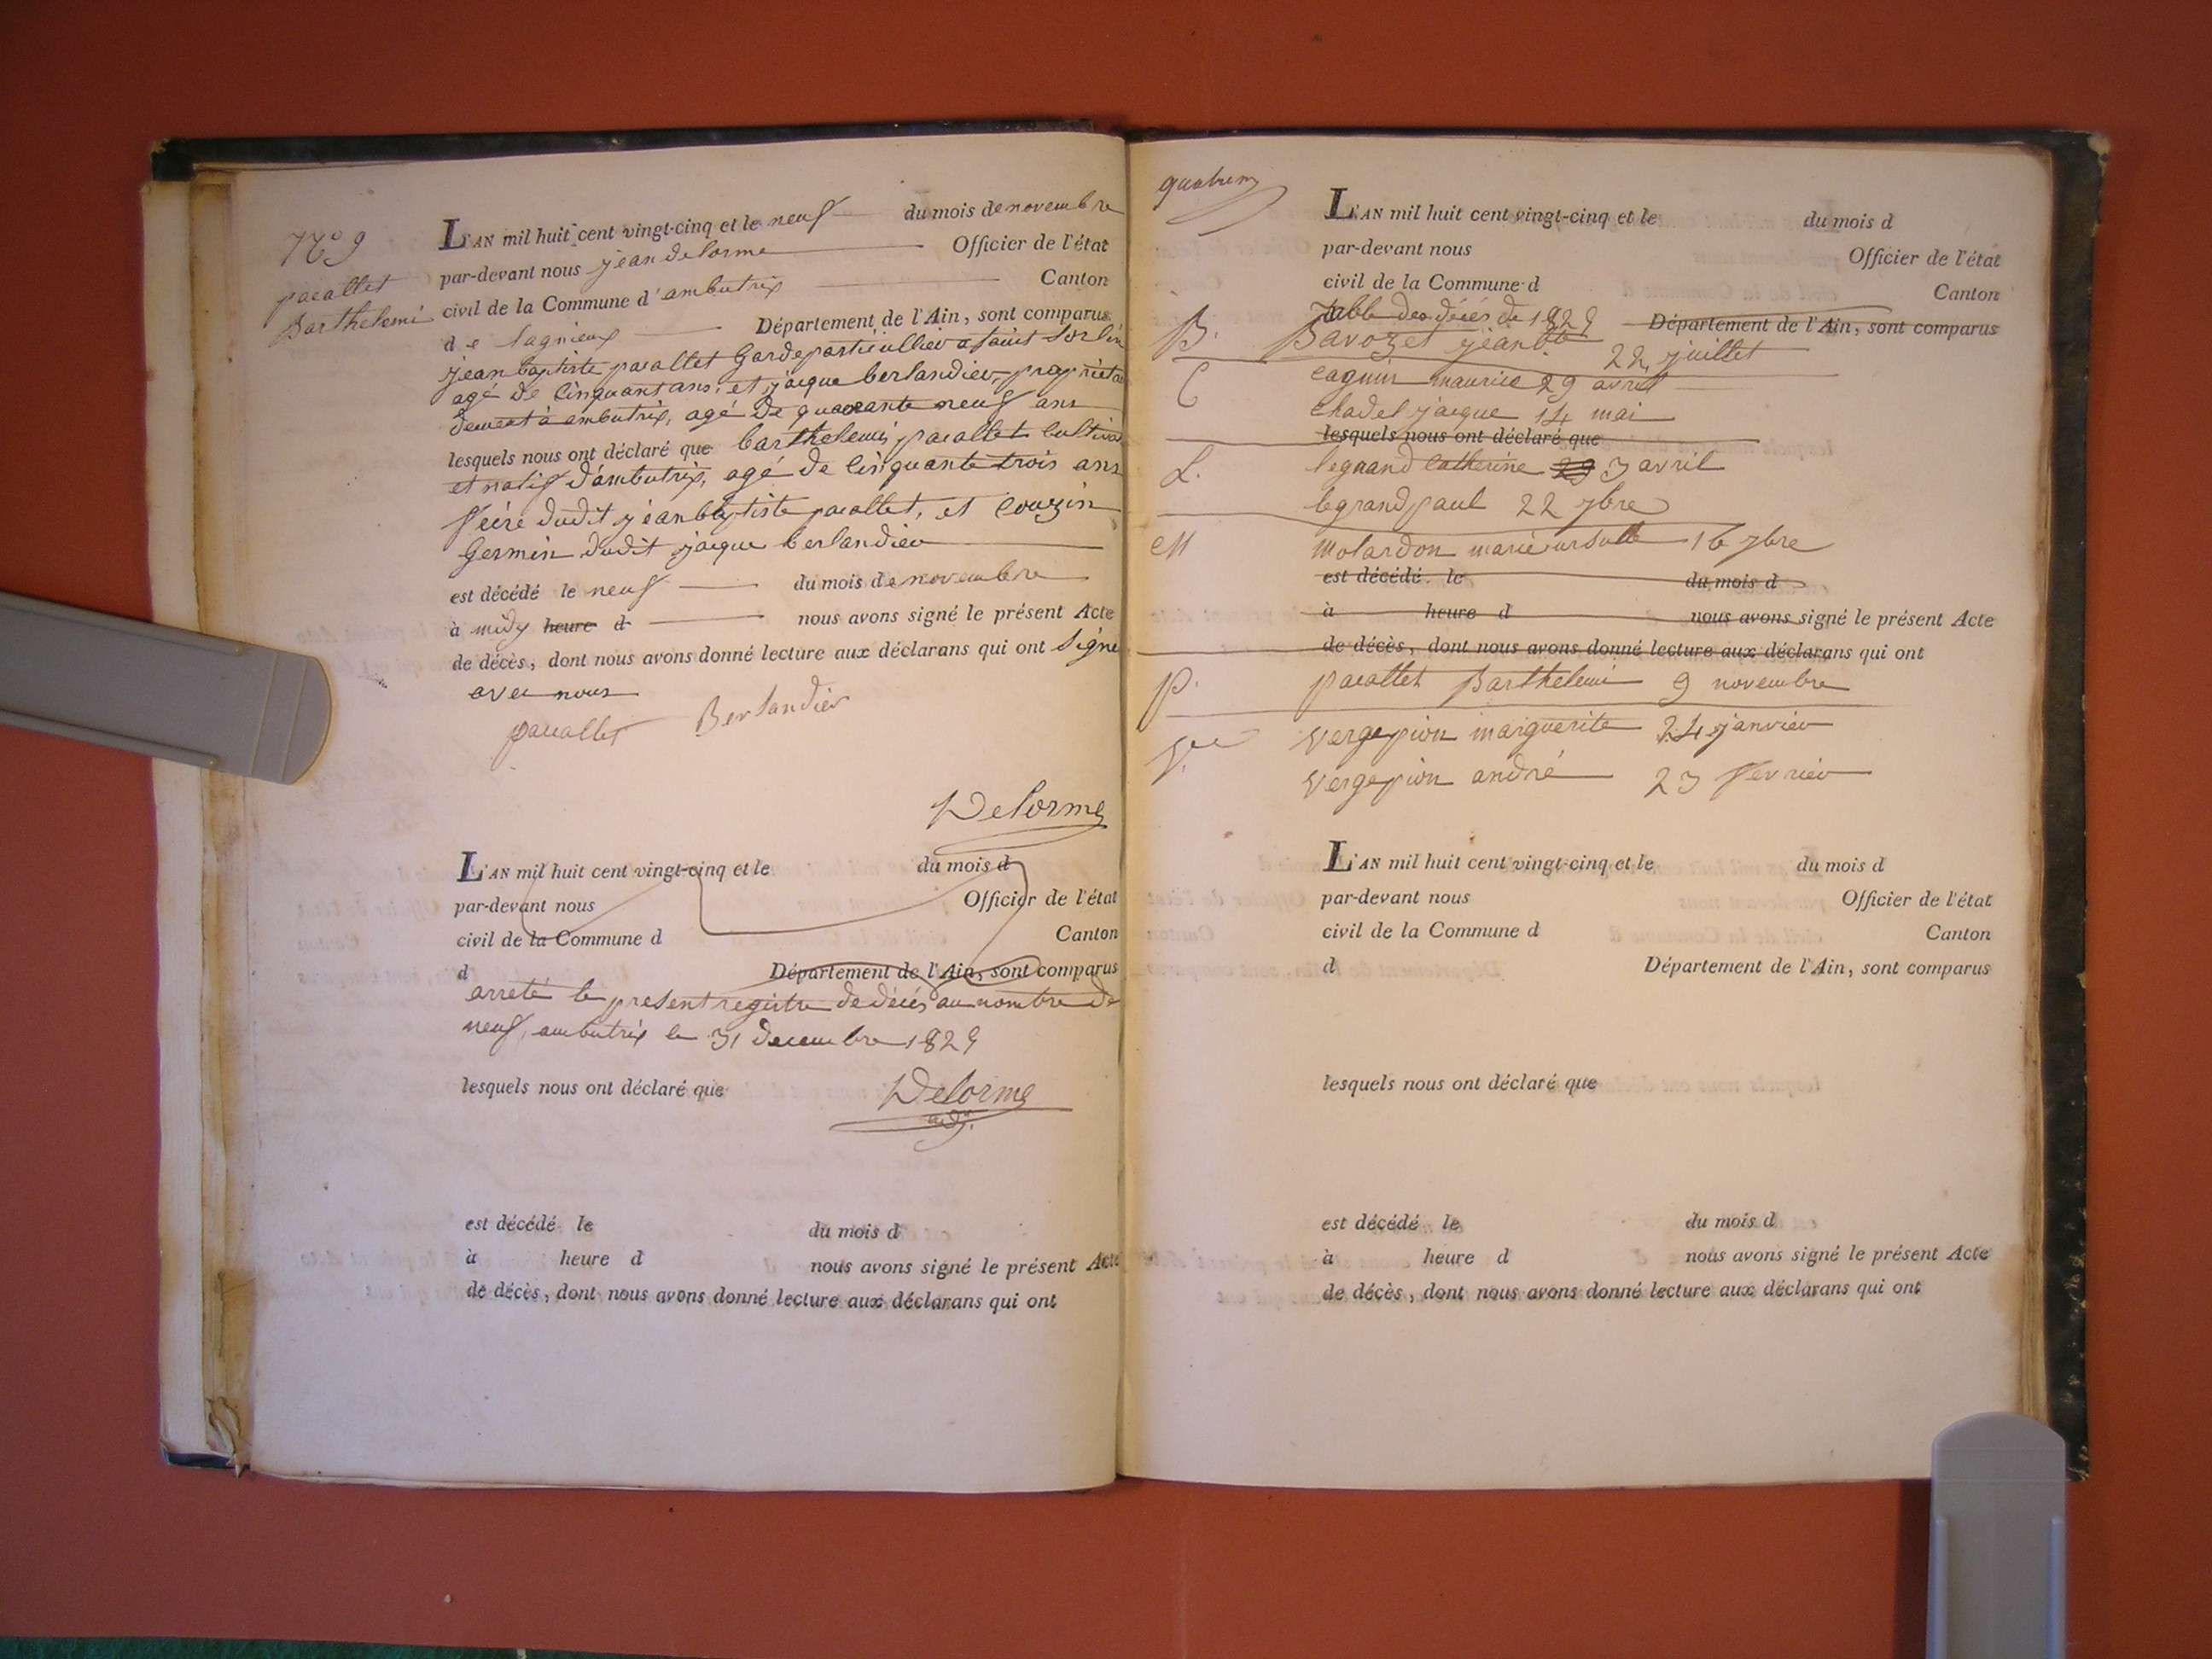 N° 9
pacallet
Barthelemi
L'AN mil huit cent vingt-cinq et le neuf du mois de novembre
par-devant nous jean delorme Officier de l'état
civil de la Commune d'ambutrix Canton
de lagnieux Département de l'Ain, sont comparus
jean baptiste pacallet Garde particullier a saint Sorlin
agé de cinquant ans, et jacque berlandier, proprietai
demeurt à ambutrix, agé de quarante neuf ans
lesquels nous ont déclaré que barthelemi pacallet cultiva
et natif d'ambutrix, agé de cinquante trois ans
frere dudit jean baptiste pacallet, et couzin
Germin dudit jacque berlandier
est décédé le neuf du mois de novembre
à midy heure d nous avons signé le présent Acte
de décès, dont nous avons donné lecture aux déclarans qui ont signé
avec nous
pacallet Berlandier
Delorme
L'AN mil huit cent vingt-cinq et le du mois d
par-devant nous Officier de l'état
civil de la Commune d Canton
d Département de l'Ain, sont comparus
arreté le present registre de décés au nombre de
neuf, ambutrix le 31 decembre 1829
lesquels nous ont déclaré que
Delorme
est décédé le du mois d
à heure d nous avons signé le présent Acte
de décès, dont nous avons donné lecture aux déclarans qui ont
L'AN mil huit cent vingt-cinq et le du mois d
par-devant nous Officier de l'état
civil de la Commune d Canton
Table des décés de 1829 Département de l'Ain, sont comparus
B. Bavozet jean bte 22 juillet
C cagnin maurice 29 avril
chadel jacque 14 mai
lesquels nous ont déclaré que
L. legrand catherine 29 3 avril
legrand paul 22 7bre
M molardon marie ursulle 16 7bre
est décédé le du mois d
à heure d nous avons signé le présent Acte
de décès, dont nous avons donné lecture aux déclarans qui ont
P. pacallet Barthelemi 9 novembre
V. vergepion marguerite 24 janvier
vergepion andré 23 fevrier
L'AN mil huit cent vingt-cinq et le du mois d
par-devant nous Officier de l'état
civil de la Commune d Canton
d Département de l'Ain, sont comparus
lesquels nous ont déclaré que
est décédé le du mois d
à heure d nous avons signé le présent Acte
de décès, dont nous avons donné lecture aux déclarans qui ont